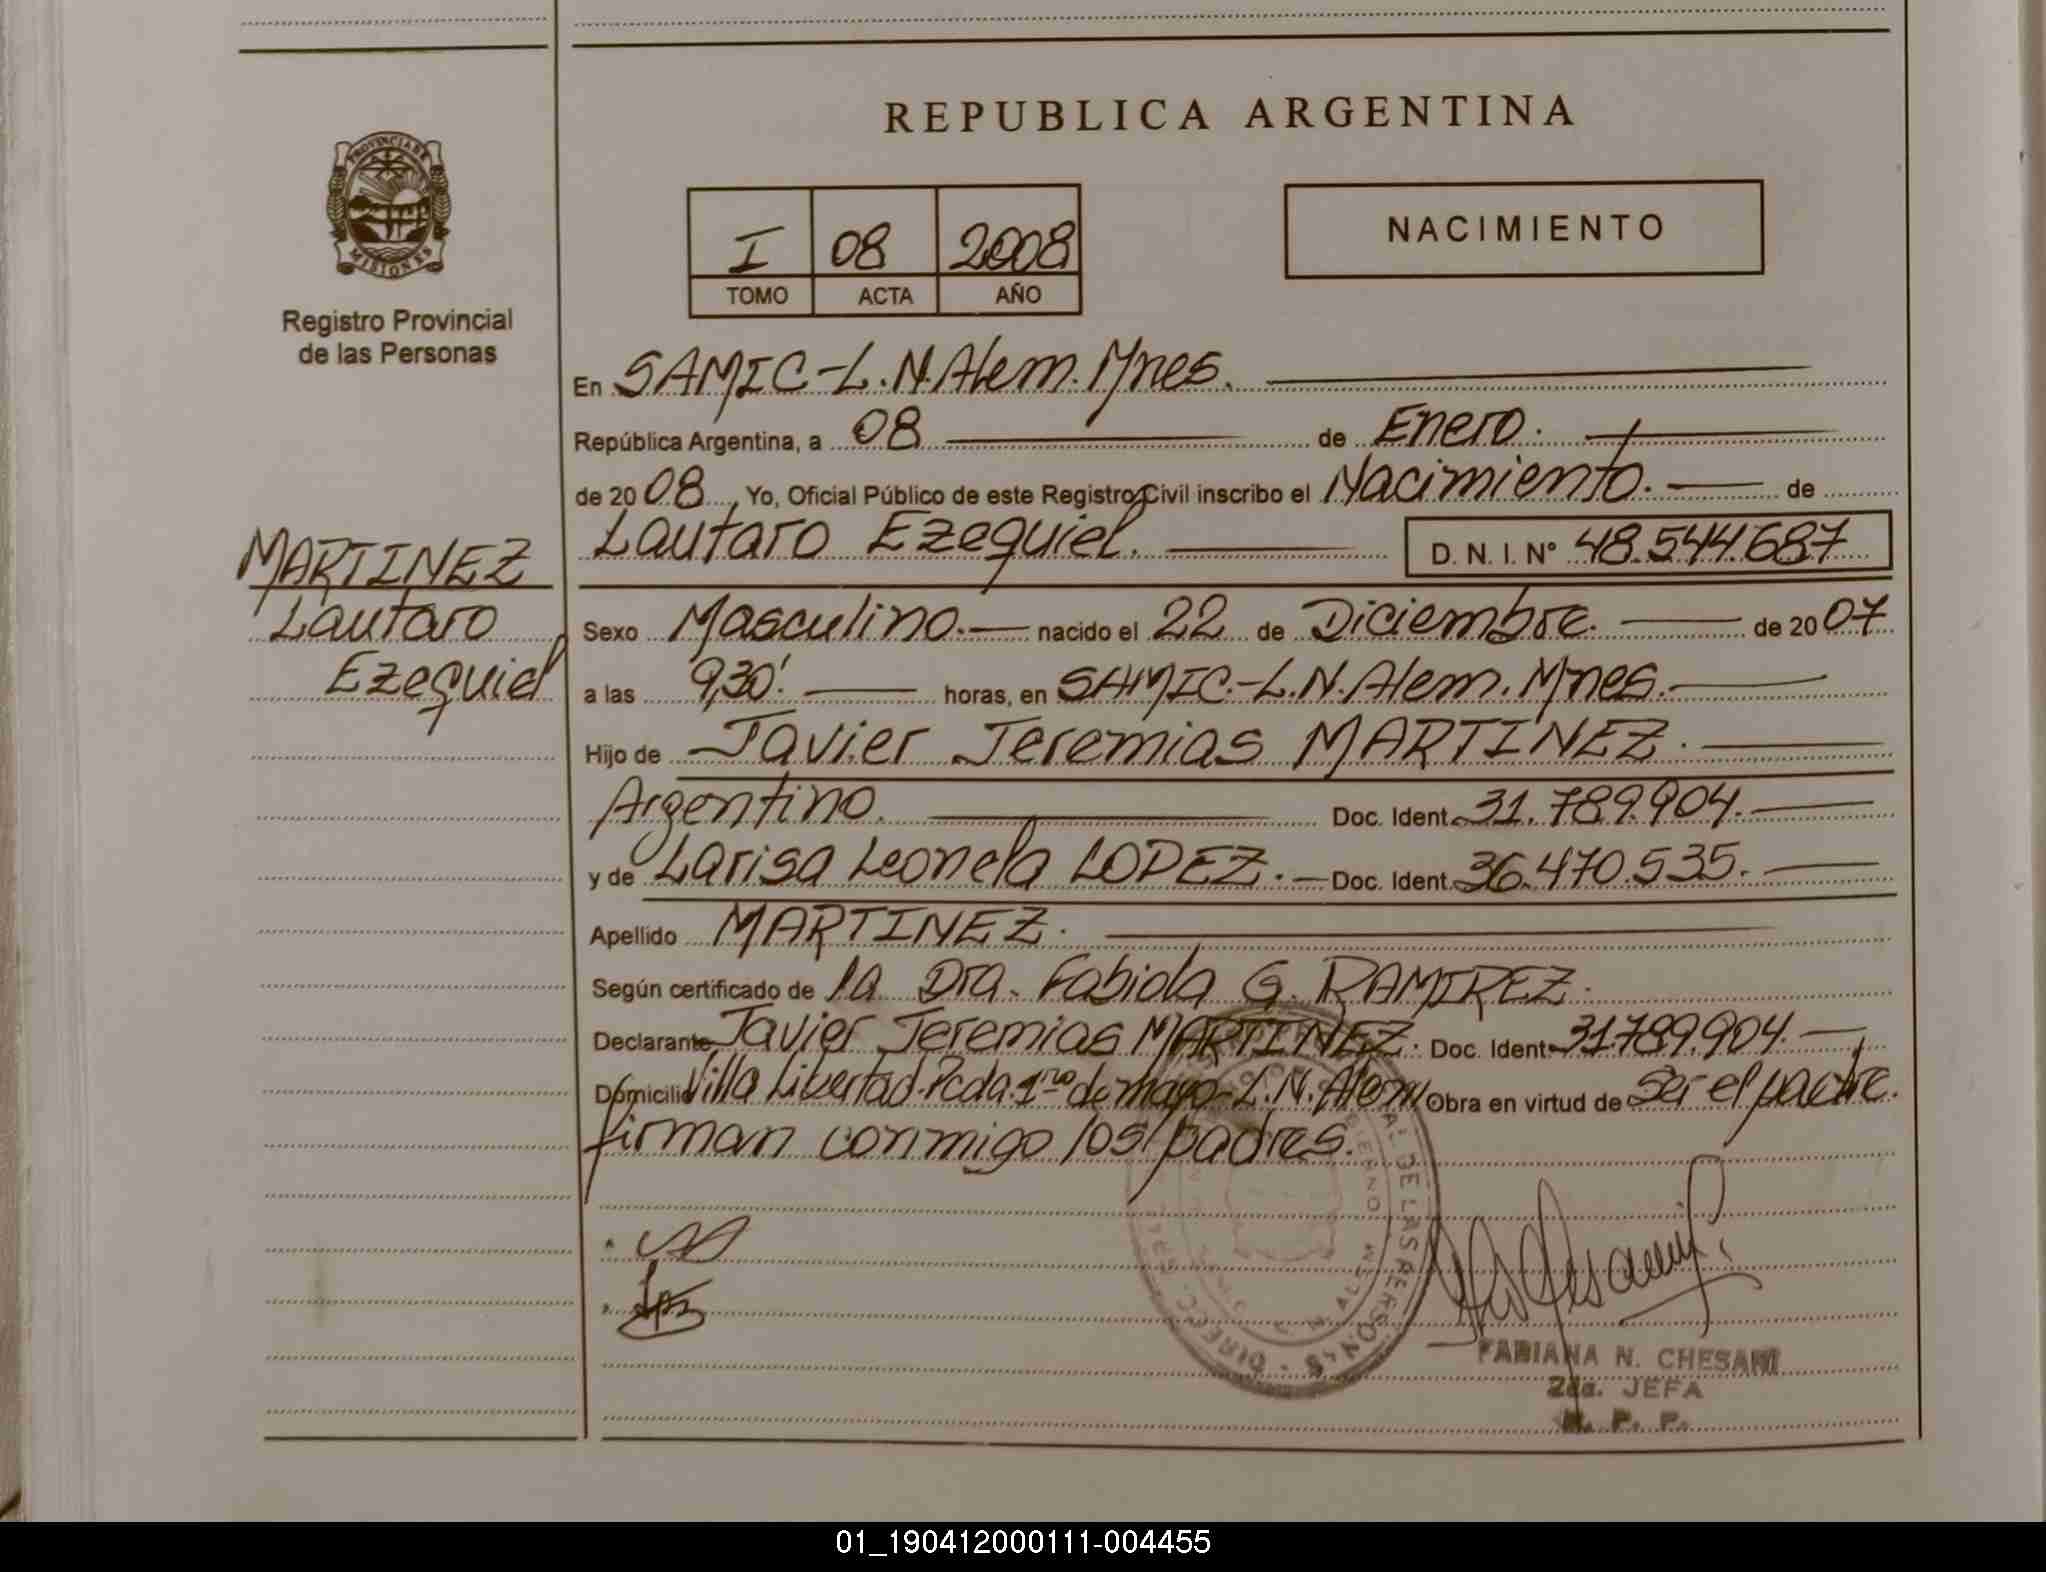 REPUBLICA ARGENTINA
PROVINCIA DE MISIONES
Registro Provincial
de las Personas
I 08 2008
TOMO ACTA AÑO
NACIMIENTO
En SAMIC-L.N.Alem.Mnes.
República Argentina, a 08 de Enero.
de 2008, Yo, Oficial Público de este Registro Civil inscribo el Nacimiento. de
Lautaro Ezequiel. D. N. I. Nº 48.544.687
MARTINEZ
Lautaro
Ezequiel
Sexo Masculino. nacido el 22 de Diciembre. de 2007
a las 9,30'. horas, en SAMIC.-L.N.Alem.Mnes.
Hijo de Javier Jeremias MARTINEZ.
Argentino. Doc. Ident. 31.789.904.
y de Larisa Leonela LOPEZ. Doc. Ident. 36.470.535.
Apellido MARTINEZ.
Según certificado de la Dra. Fabiola G. RAMIREZ.
Declarante Javier Jeremias MARTINEZ. Doc. Ident. 31.789.904.
Domicilio Villa Libertad. Pcda. 1ro de mayo-L.N.Alem Obra en virtud de Ser el padre.
firman conmigo los padres.
DE LAS PERSONAS
FABIANA N. CHESANI
2da. JEFA
R. P. P.
01_190412000111-004455